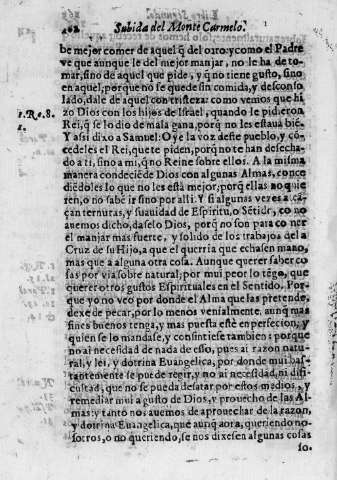 202 Subida del Monte Carmelo.
be mejor comer de aquel q̃ del otro: y como el Padre
ve que aunque le dèl mejor manjar, no le ha de to-
mar, sino de aquel que pide, y q̃ no tiene gusto, sino
en aquel, porque no se quede sin comida, y desconso
lado, dale de aquel con tristeza: como vemos que hi
1.Re.8. zo Dios con los hijos de Israel, quando le pidieron
Rei, q̃ se lo dio de mala gana, porq̃ no les estaua biẽ.
Y assi dixo a Samuel: Oye la voz deste pueblo, y cõ-
cedeles el Rei, que te piden, porq̃ no te han desecha-
do a ti, sino a mi, q̃ no Reine sobre ellos. A la misma
manera condeciẽde Dios con algunas Almas, conce
diẽdoles lo que no les està mejor, porq̃ ellas no quie
ren, o no sabẽ ir sino por alli. Y si algunas vezes alcã-
çan ternuras, y suauidad de Espiritu, o Sẽtidr, co no
auemos dicho, daselo Dios, porq̃ no son para co ner
el manjar mas fuerte, y solido de los trabajos de la
Cruz de su Hijo, a que el querria que echasen mano,
mas que a alguna otra cosa. Aunque querer saber co
sas por via sobre natural, por mui peor lo tẽgo, que
querer otros gustos Espirituales en el Sentido. Por-
que yo no veo por donde el Alma que las pretende,
dexe de pecar, por lo menos venialmente, aunq̃ mas
fines buenos tenga, y mas puesta estè en perfeccion, y
quien se lo mandase, y consintiese tambien: porque
no ai necesidad de nada de eso, pues ai razon natu-
ral, y lei, y dotrina Euangelica, por donde mui bas-
tantemente se puede regir, y no ai necesidad, ni difi-
cultad, que no se pueda desatar por estos medios, y
remediar mui a gusto de Dios, y prouecho de las Al-
mas: y tanto nos auemos de aprouechar de la razon,
y dotrina Euangelica, que aunq̃ aora, queriendo no-
sotros, o no queriendo, se nos dixesen algunas cosas
so.